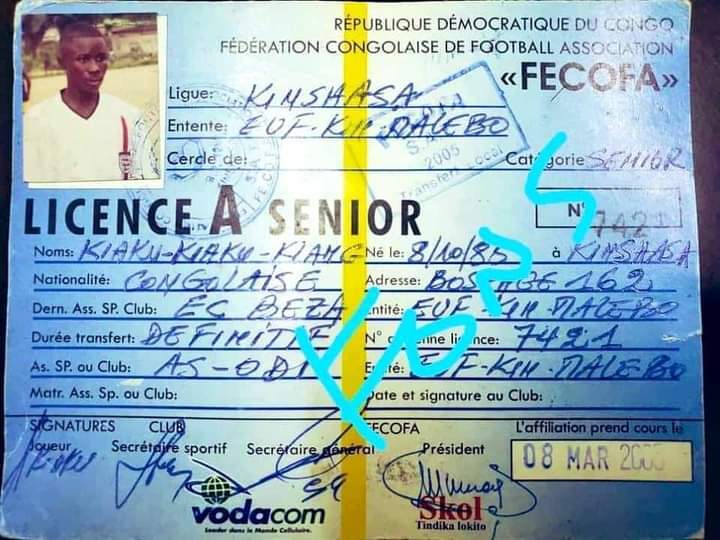 RÉPUBLIQUE DÉMOCRATIQUE DU CONGO
FÉDÉRATION CONGOLAISE DE FOOTBALL ASSOCIATION
«FECOFA»
Ligue: KINSHASA
Entente: EUF-KIN MALEBO
Cercle de:
2005
Transfert Local
Catégorie SENIOR
LICENCE A SENIOR
N° 7421
Noms: KIAKU-KIAKU-KIANG Né le: 8/10/85 à KINSHASA
Nationalité: CONGOLAISE Adresse: 162
Dern. Ass. SP. Club: EC BEZA Entité: EUF-KIN-MALEBO
Durée transfert: DEFINITIF N° licence: 7421
As. SP. ou Club: AS-ODI Entité: EUF-KIN-MALEBO
Matr. Ass. Sp. ou Club: Date et signature au Club:
SIGNATURES CLUB FECOFA L'affiliation prend cours le
Joueur Secrétaire sportif Secrétaire général Président
08 MAR
vodacom
Leader dans le Monde Cellulaire.
Skol
Tindika lokito